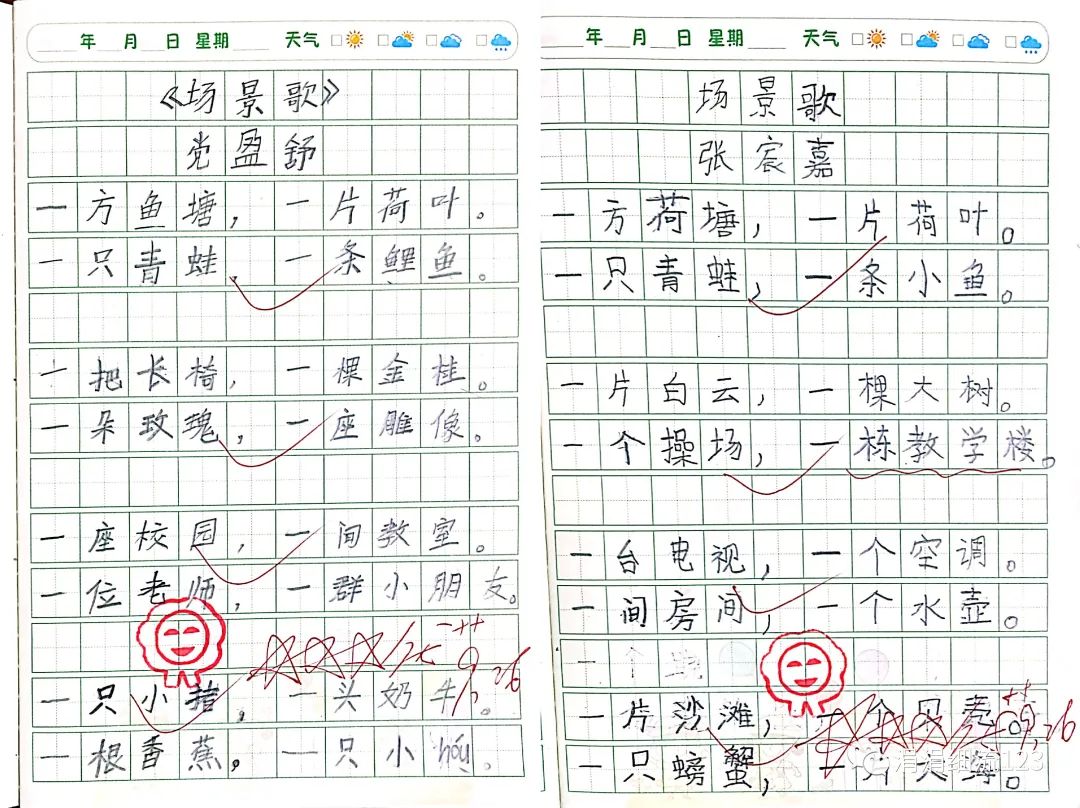 年 月 日 星期 天气
《场景歌》
党盈舒
一方鱼塘，一片荷叶。
一只青蛙，一条鲤鱼。
一把长椅，一棵金桂。
一朵玫瑰，一座雕像。
一座校园，一间教室。
一位老师，一群小朋友。
一只小猪，一头奶牛。
一根香蕉，一只小hóu。
9.26
年 月 日 星期 天气
场景歌
张宸嘉
一方荷塘，一片荷叶。
一只青蛙，一条小鱼。
一片白云，一棵大树。
一个操场，一栋教学楼。
一台电视，一个空调。
一间房间，一个水壶。
一个
一片沙滩，一个贝壳。
一只螃蟹，一只大海。
9.26
涓涓细流123